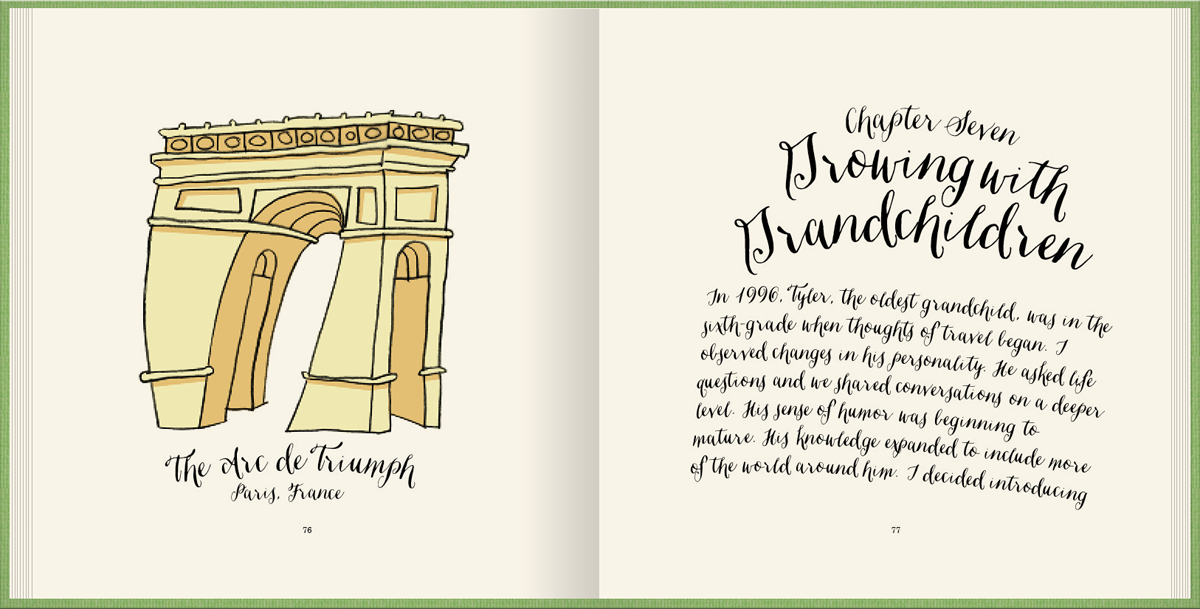 The Arc de Triumph
Paris, France
76
Chapter Seven
Growing with
Grandchildren
In 1996, Tyler, the oldest grandchild, was in the
sixth-grade when thoughts of travel began. I
observed changes in his personality. He asked life
questions and we shared conversations on a deeper
level. His sense of humor was beginning to
mature. His knowledge expanded to include more
of the world around him. I decided introducing
77